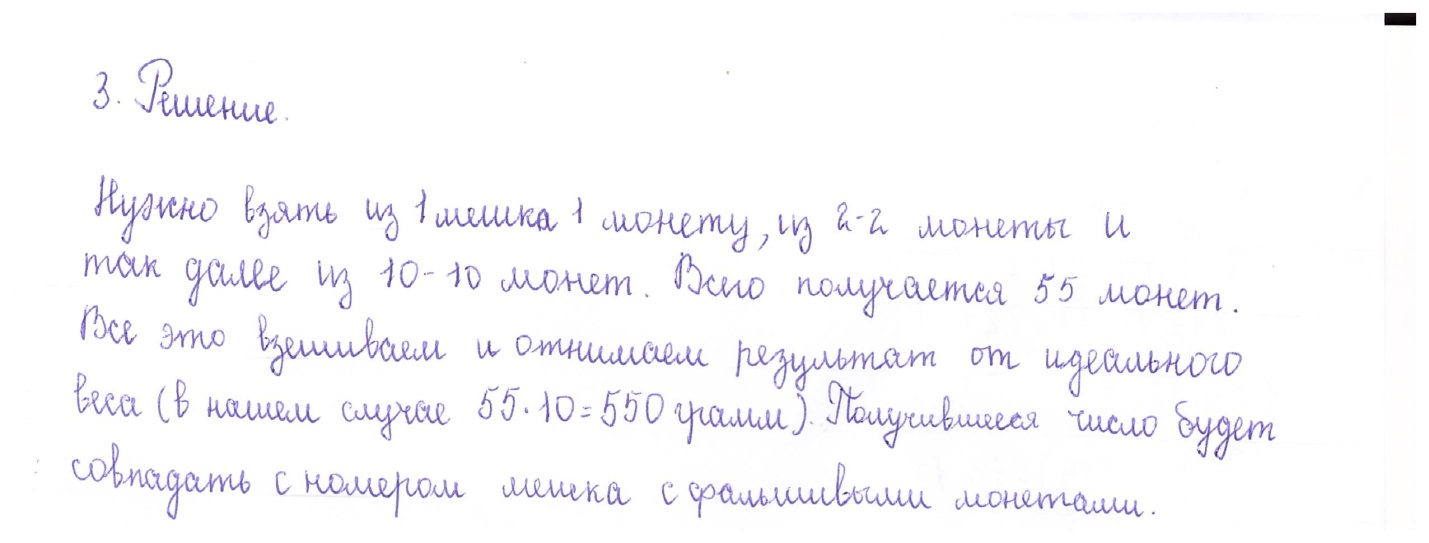 3. Решение.
Нужно взять из 1 мешка 1 монету, из 2-2 монеты и
так далее из 10-10 монет. Всего получается 55 монет.
Все это взешиваем и отнимаем результат от идеального
веса (в нашем случае 55·10=550 грамм). Получившееся число будет
совпадать с номером мешка с фальшивыми монетами.